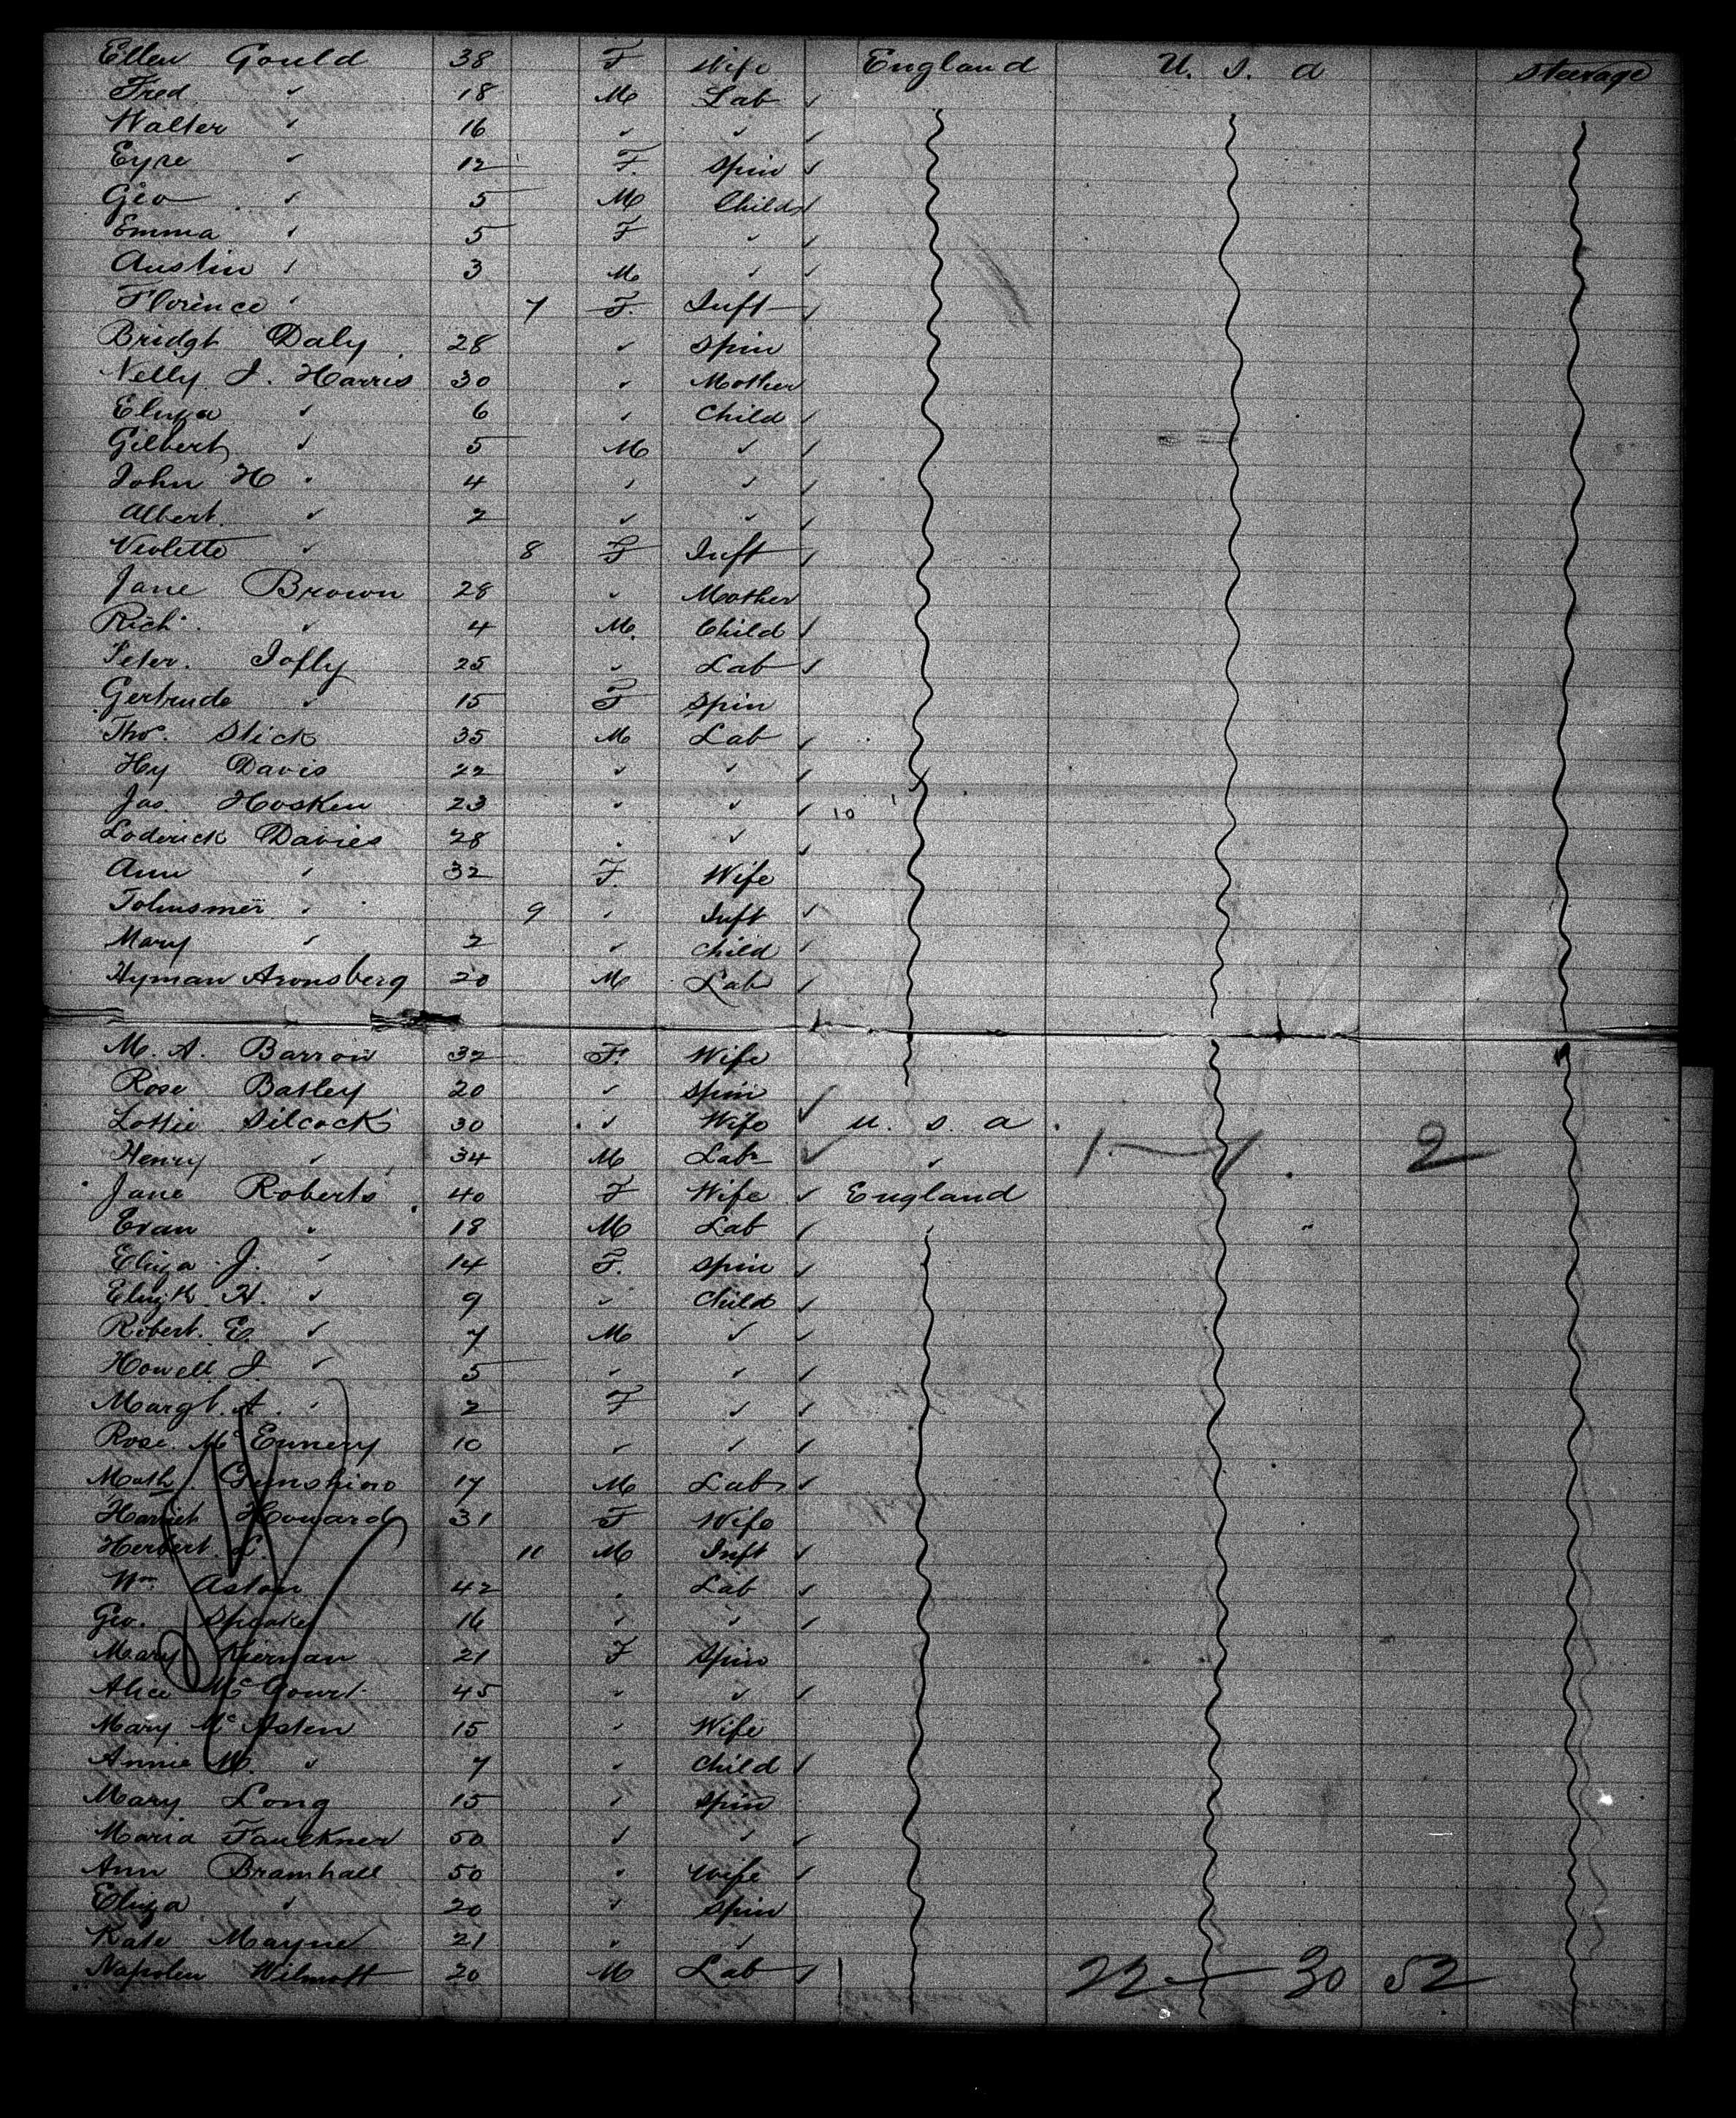 Ellen Gould 38 F Wife England U. S. a Steerage
Fred " 18 M Lab
Walter " 16 " "
Eyre " 12 F. Spin
Geo " 5 M Child
Emma " 5 F "
Austin " 3 M "
Florence " 7 F. Inft
Bridgt Daly 28 " Spin
Nelly J. Harris 30 " Mother
Eliza " 6 " Child
Gilbert " 5 M "
John H " 4 " "
Albert " 2 " "
Violette " 8 F Inft
Jane Brown 28 " Mother
Rich. " 4 M. Child
Peter. 25 " Lab
Gertrude " 15 F Spin
Thos. Slick 35 M Lab
Hy Davis 22 " "
Jas. Hosken 23 " " 10
Loderick Davies 28 " "
Ann " 32 F. Wife
" 9 " Inft
Mary " 2 " Child
Hyman Aronsberg 20 M Lab
M. A. Barron 32 F. Wife
Rose Batley 20 " Spin
Lottie Silcock 30 " Wife U. S. a.
Henry " 34 M Lab " 1 1 2
Jane Roberts 40 F Wife England
Evan " 18 M Lab "
Eliza J. " 14 F. Spin
Elizth H. " 9 " Child
Robert. E. " 7 M "
Howell J. " 5 " "
Margt. A. " 2 F "
Rose Mc Ennery 10 " "
Math. 17 M Lab
Harriet Howard 31 F Wife
Herbert L. 11 M Inft
Wm. Aston 42 " Lab
Geo. Speake 16 " "
Mary Kiernan 21 F Spin
Alice Mc Court 45 " "
Mary Mc Asten 15 " Wife
Annie M. " 7 " Child
Mary Long 15 " Spin
Maria Faulkner 50 " "
Ann Bramhall 50 " Wife
Eliza " 20 " Spin
Kate Mayne 21 " "
Napolen Wilmott 20 M Lab 22 30 52